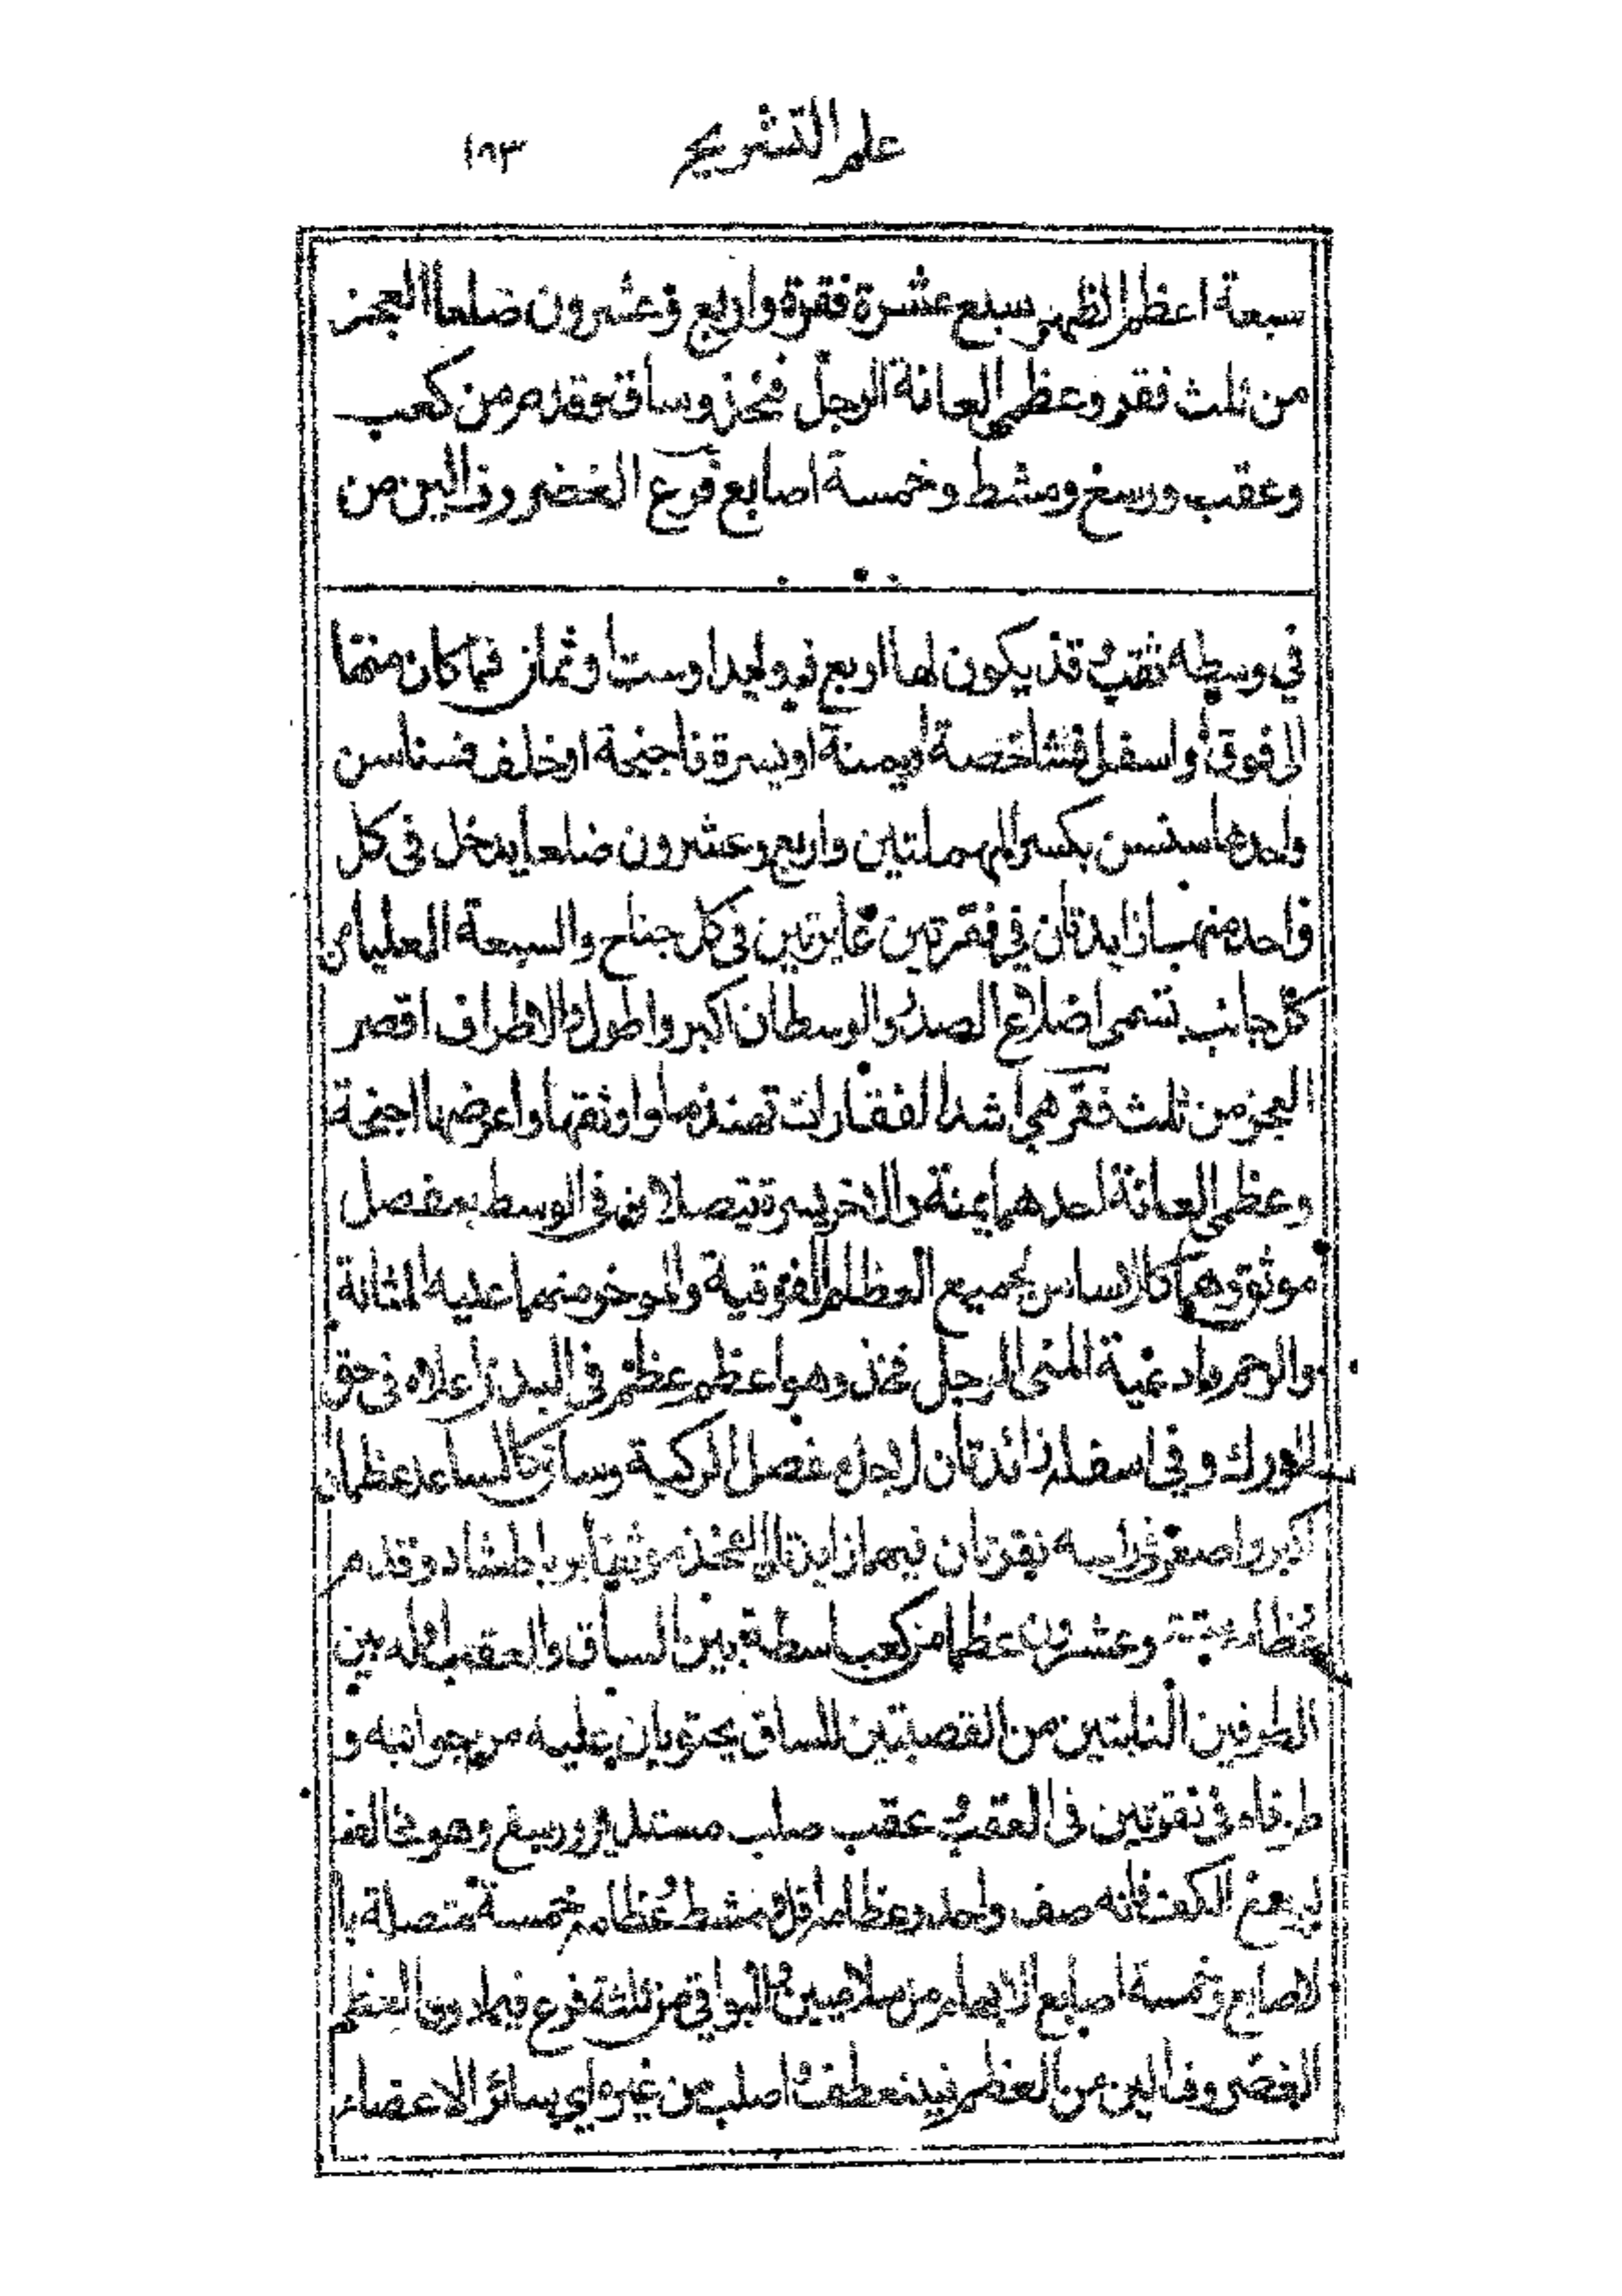 علم التشريح ١٨٣
سبعة اعظم الظهر سبع عشرة فقرة واربع وعشرون ضلعا العجز
من ثلث فقر وعظمي العانة الرجل فخذ وساق وقدم من كعب
وعقب ورسغ ومشط وخمسة اصابع فرع الغضروف الين من
في وسطه ثقب قد يكون لها اربع زوايدا وستا وثمان فما كان منها
الى فوق او اسفل فشاخصة او يمنة او يسرة فاجنحة او خلف فسناسن
واحدها سنسن بكسر المهملتين واربع وعشرون ضلعا يدخل في كل
واحد منها زايدتان في فقرتين غايرتين في كل جناح والسبعة العليا من
كل جانب تسمى اضلاع الصدر والوسطان اكبر واطول والاطراف اقصر
العجز من ثلث فقر هي اشد الفقارات تهندما واوثقها واعرضها اجنحة
وعظمي العانة احدهما يمنة والاخر يسرة يتصلان في الوسط بمفصل
موثق وهما كالاساس لجميع العظام الفوقية والموخر منهما عليه المثانة
والرحم واوعية المنى الرجل فخذ وهو اعظم عظم في البدن اعلاه في حق
الورك وفي اسفله زائدتان لاجل مفصل الركبة وساق كالساعد عظمان
اكبر واصغر في راسه نقرتان فيهما زايدتا الفخذ موثقا برباط شاد وقدم
عظامه ستة وعشرون عظما من كعب واسطة بين الساق والعقب له بين
الطرفين الناتئين من القصبتين للساق يحتويان عليه من جوانبه و
طرفاه في نقرتين في العقب وعقب صلب مستدير ورسغ وهو مخالف
لرسغ الكف فانه صف واحد وعظامه اقل ومشط عظامه خمسة متصلة با
لاصابع وخمسة اصابع الابهام من سلاميين والبواقي من ثلثة فرع فيما دون العظم
الغضروف الين من العظم فينعطف واصلب من غيره اي سائر الاعضاء